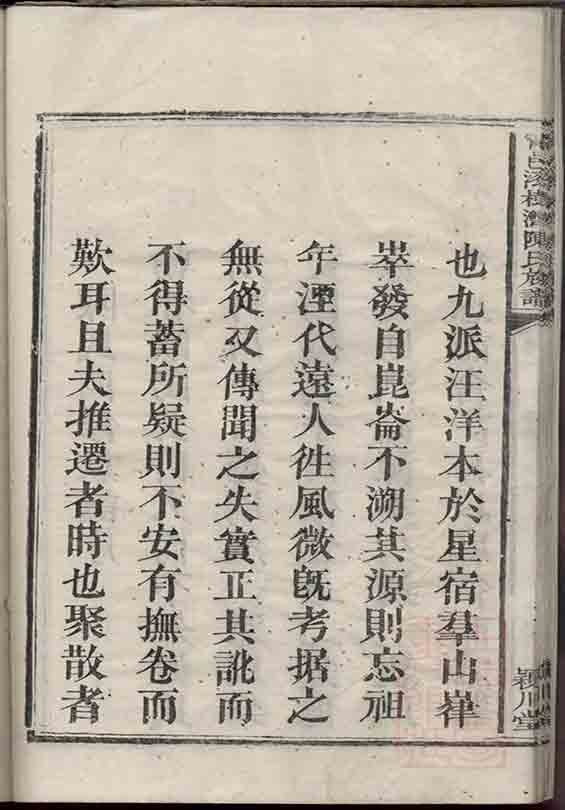 也九派汪洋本於星宿羣山崔
崒發自崑崙不溯其源則忘祖
年湮代遠人徃風微旣考据之
無從又傳聞之失實正其訛而
不得蓄所疑則不安有撫卷而
歎耳且夫推遷者時也聚散者
陳氏族譜
潁川堂